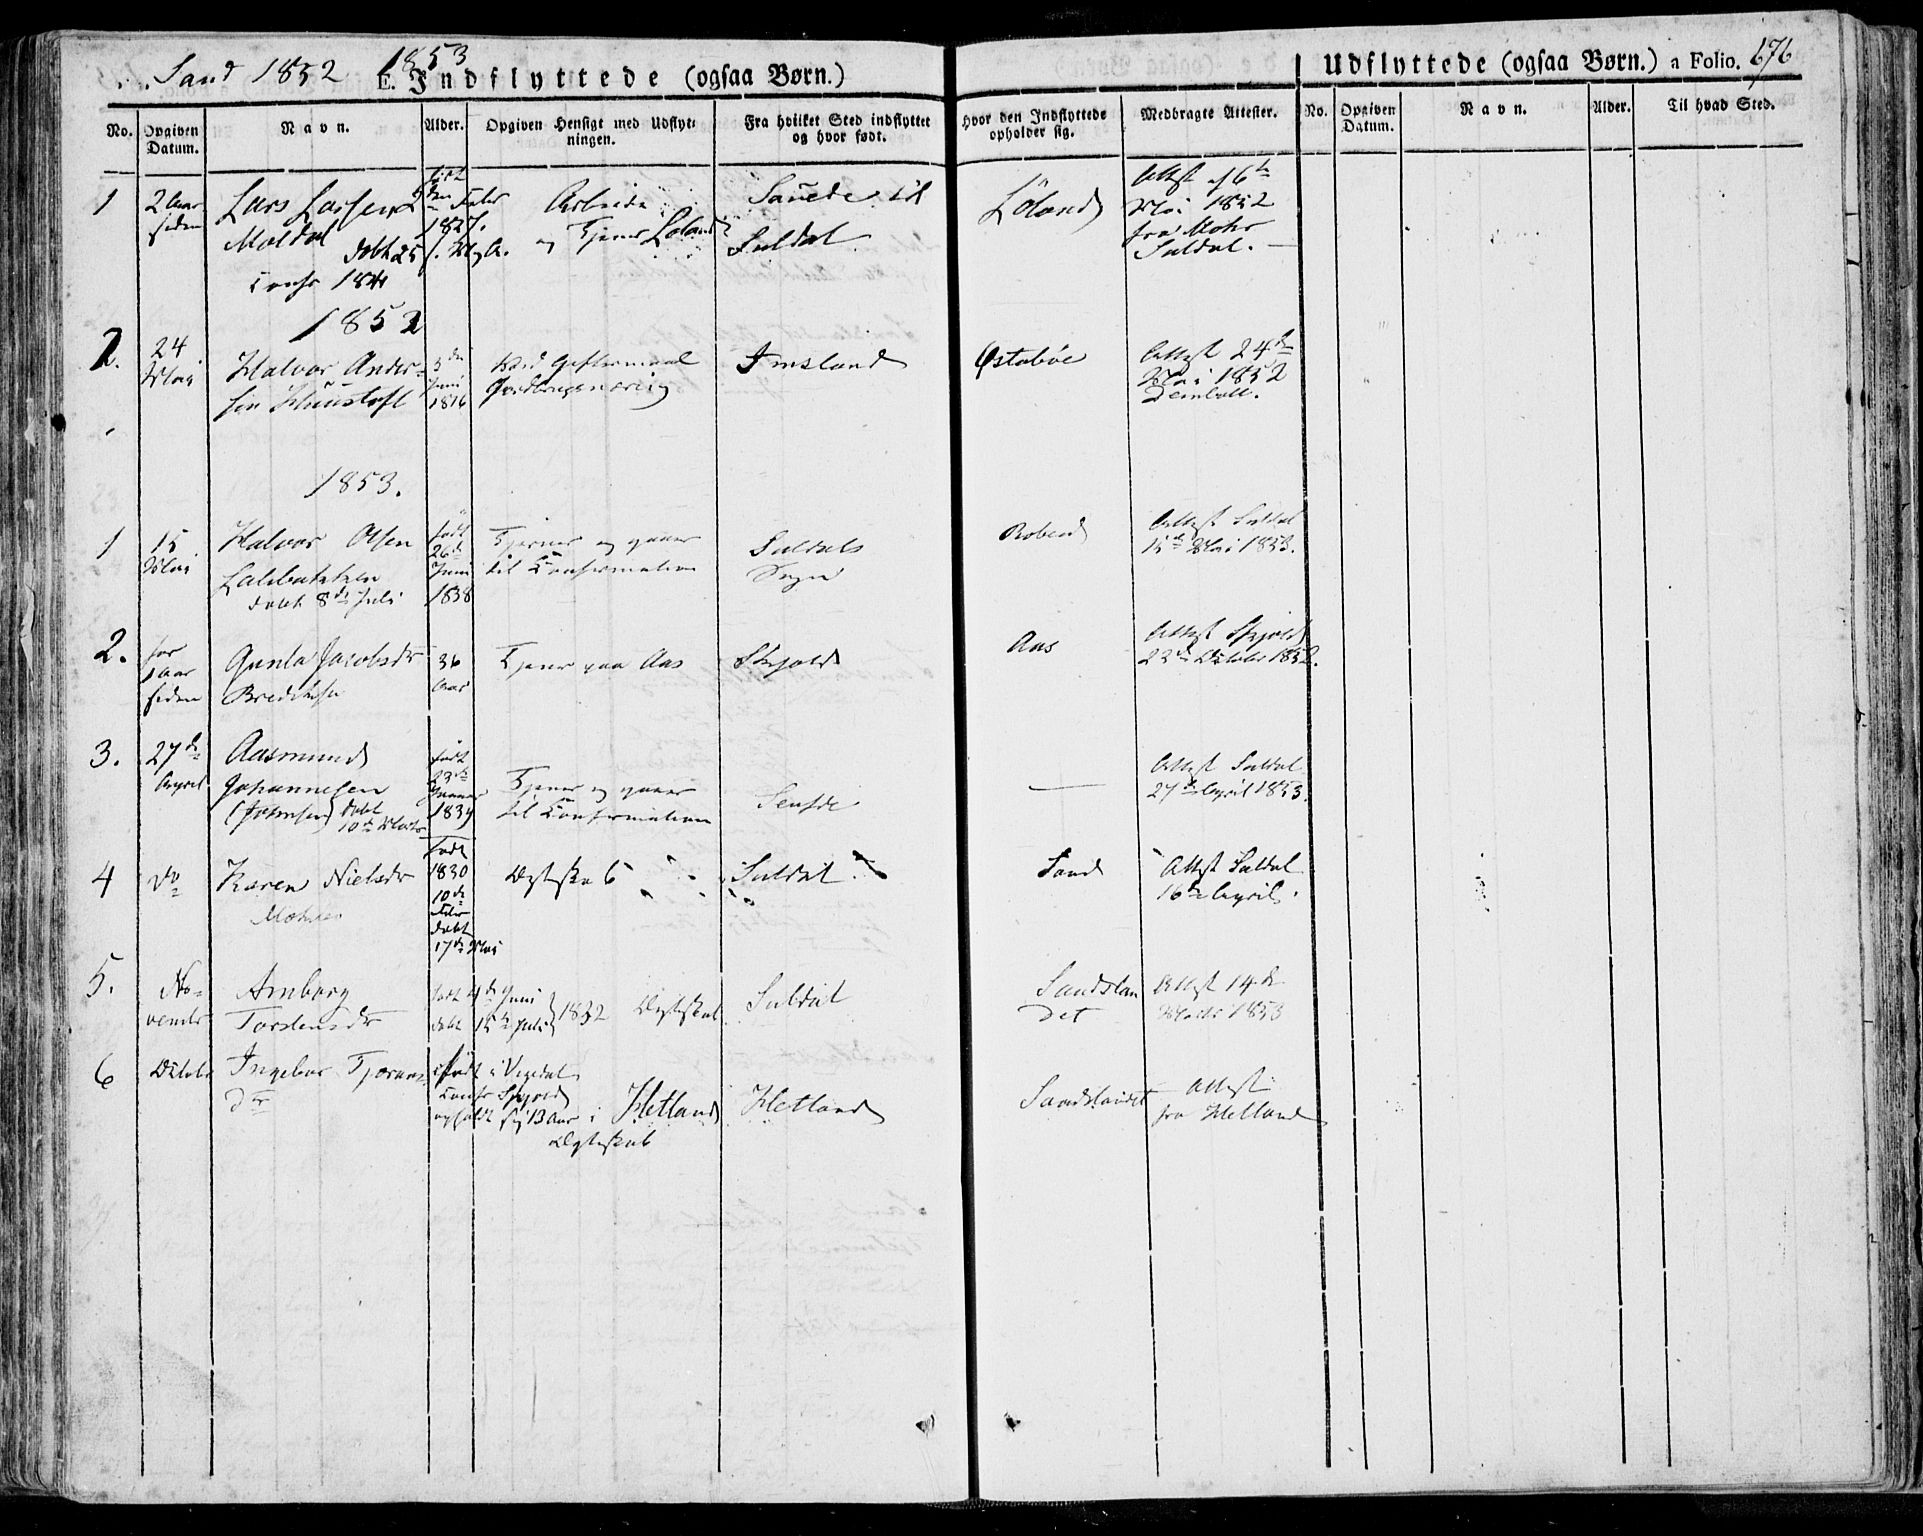 Sand 1852 1853
E. Indflyttede (ogsaa Børn.)
Udflyttede (ogsaa Børn.) a Folio. 676
No. Opgiven Datum. Navn. Alder. Opgiven Hensigt med Udflytningen. Fra hvilket Sted indflyttet og hvor født. Hvor den Indflyttede opholder sig. Medbragte Attester. No. Opgiven Datum. Navn. Alder. Til hvad Sted.
1 2 Aar siden
Lars Larsen
Moldal
døbt 25
Confr 1841
født
1827.
Arbeide
og Tjener Løland
Sauede i
Suldal
Løland
Attest 16de
Mai 1852
fra Mohr
Suldal.
1852
2. 24 Mai
Halvor Anders-
sen
3de Juni 1816
Ved Giftermaal
Imsland
Østabøe
Attest 24de
Mai 1852
1853.
1 15 Mai
Halvor Olsen
døbt 8de Juli
født 26de Juni 1838
Tjener og gaaer
til Confirmation
Suldals
Sogn
Attest Suldal
15de Mai 1853.
2. for 1 aar siden
Gunla Jacobsdr
36 Aar
Tjener paa Aas
Skjold
Aas
Attest Skjold
23de Octobr 1852.
3. 27de April
Aasmund
Johannesen
døbt
10de Marts
født 23de Januar 1839
Tjener og gaaer
til Confirmation
Attest Suldal
27de April 1853.
4 Do
Karen Nielsdr
født 1830
10de
døbt
17de Mai
Ægteskab
Suldal
Sand
Attest Suldal
16de April.
5. November
Amborg
Torstensdr
født 4de Juni
døbt 15de Juli 1832
Ægteskab
Suldal
Sandslan
det
Attest 14de
Marts 1853
6 Octobr
Ingebor
dtr
født i
Confr Skjold
opholdt sig 13 Aar i Hetland
Ægteskab
Hetland
Sandslandet
Attest
fra Hetland